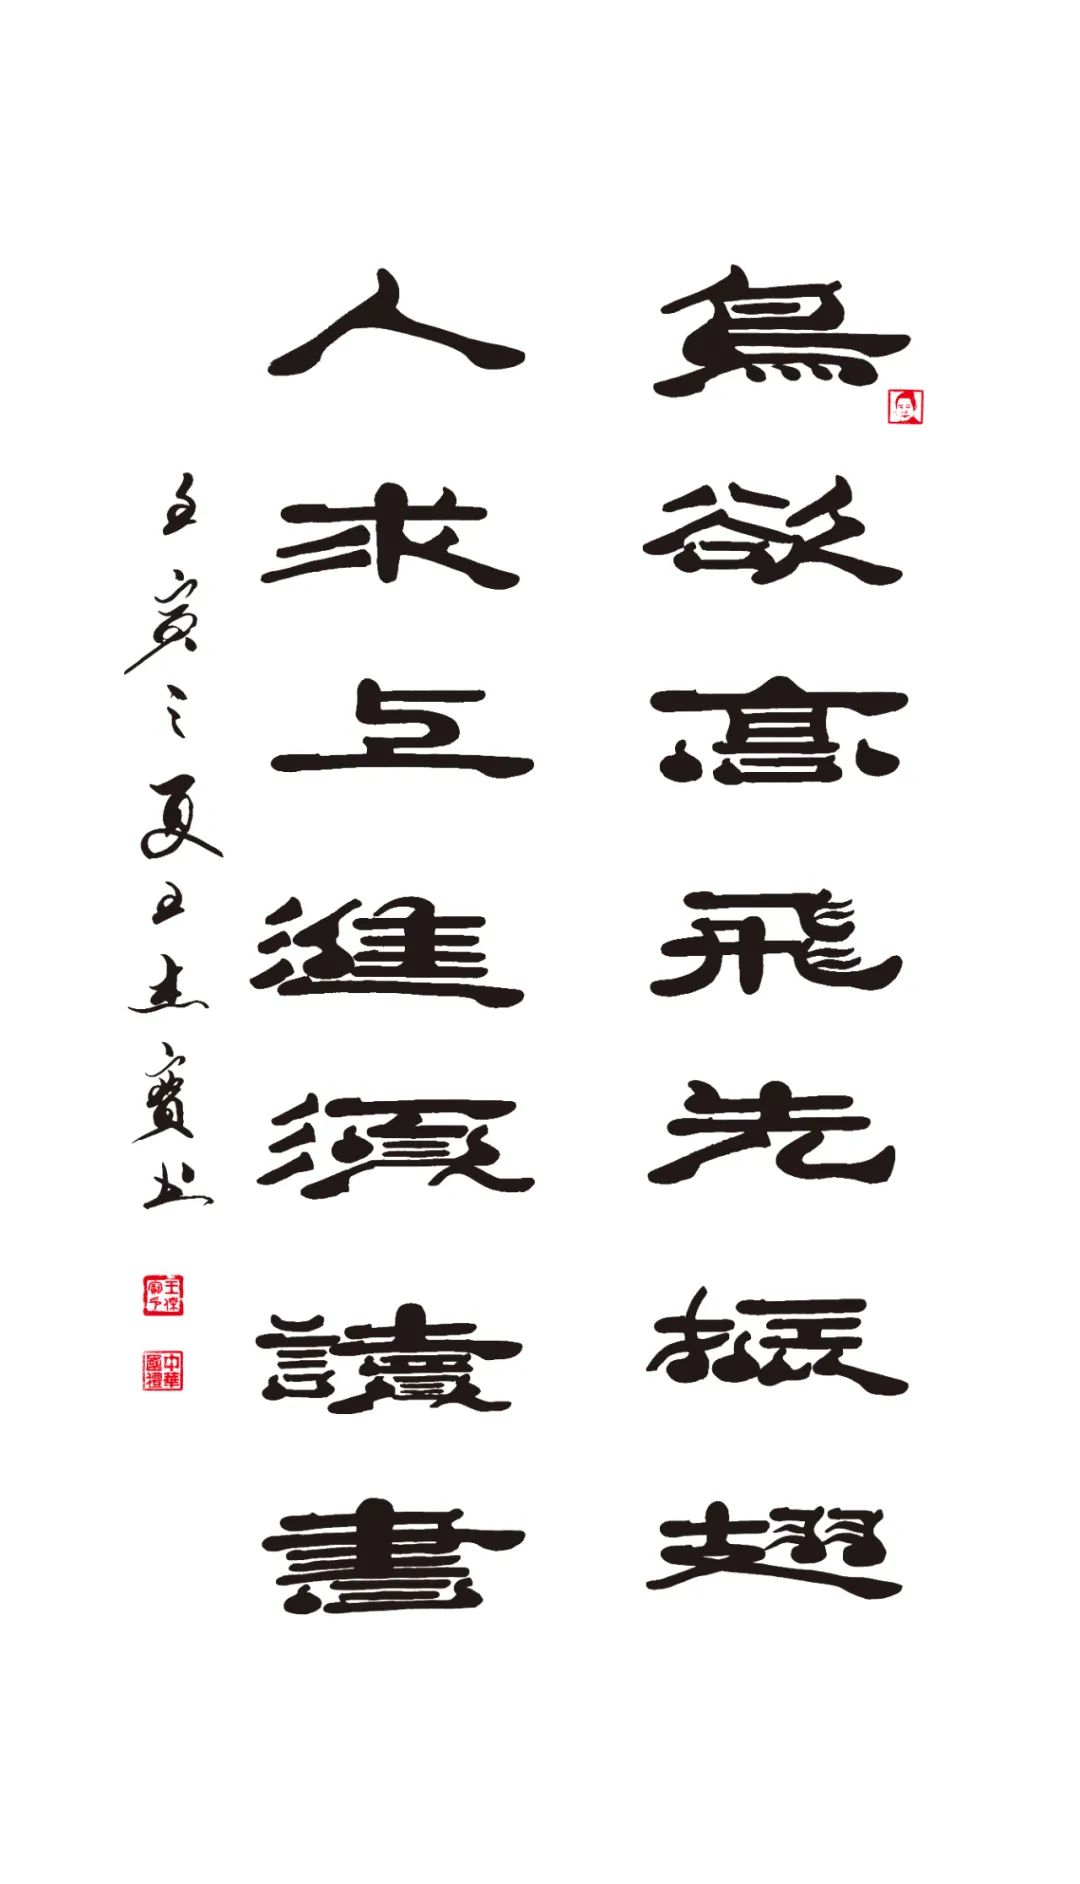 鳥欲高飛先振翅
人求上進須讀書
壬寅之夏王杰寶书
中華國禮